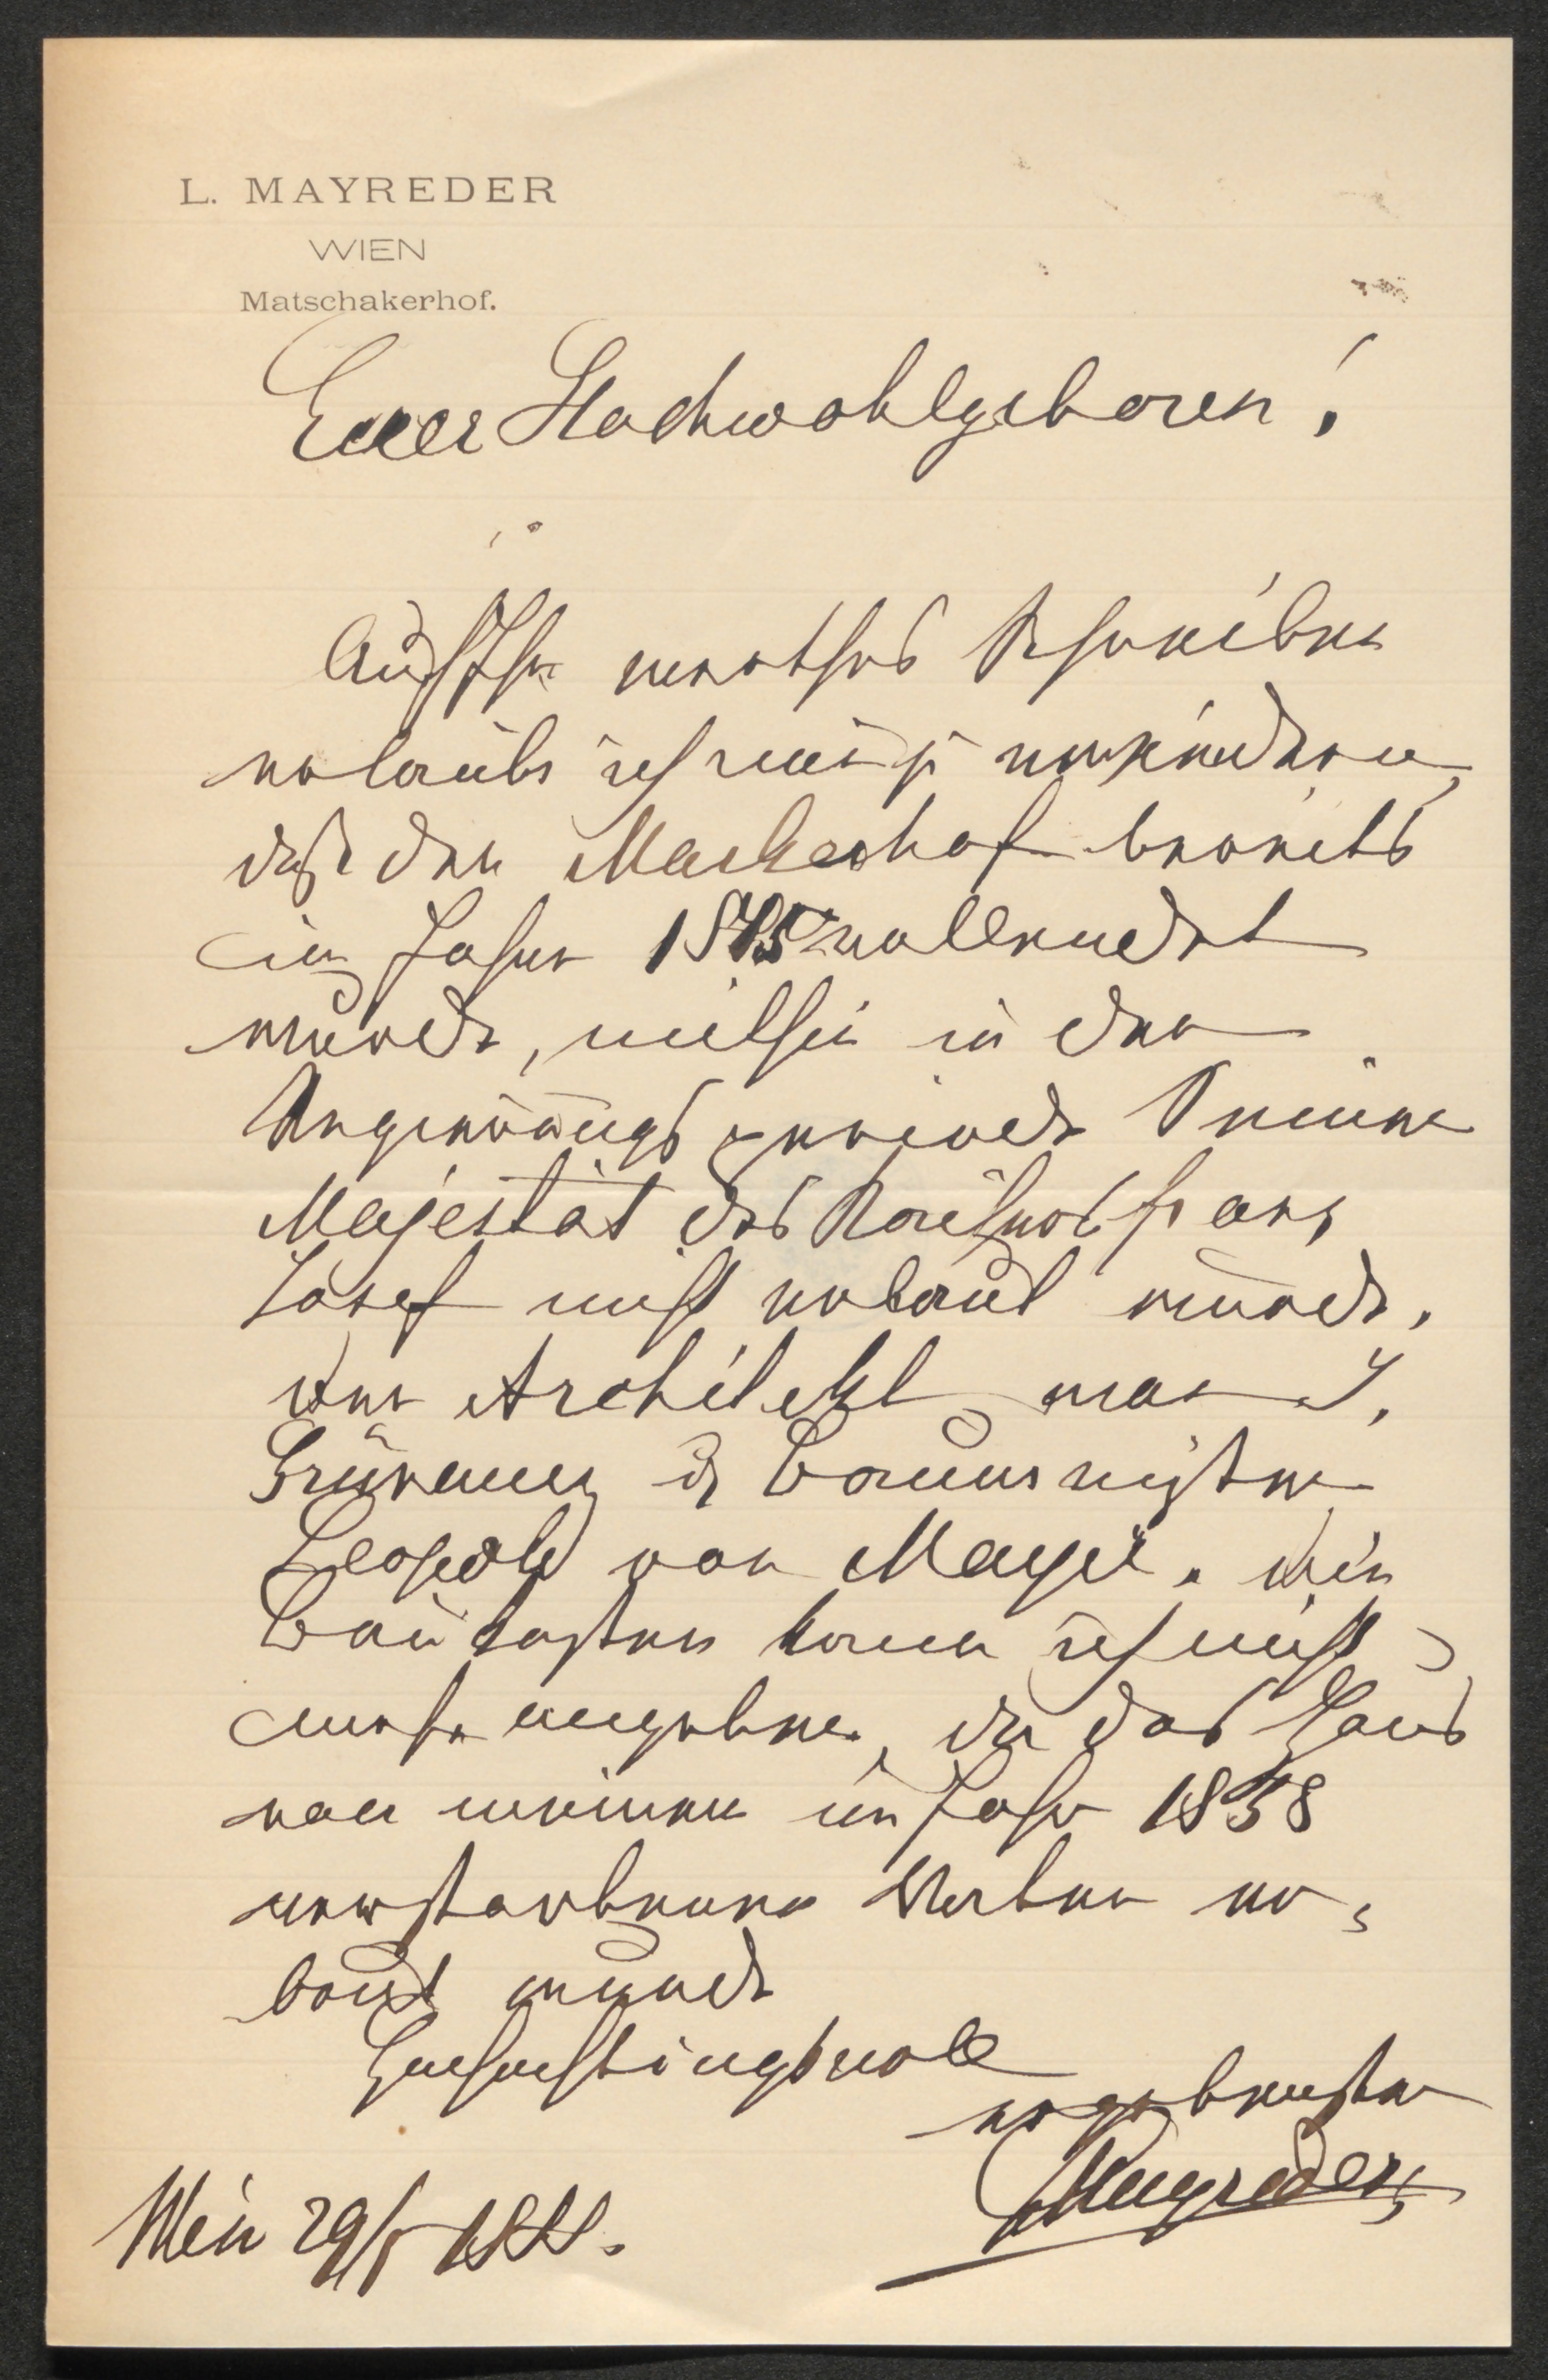 L. MAYREDER
WIEN
Matschakerhof.
Euer Hochwohlgeboren!
Auf Ihr werthes Schreiben
erlaube ich mir zu erwidern,
daß der Markerhof bereits
im Jahre 1845 vollendet
wurde, mithin in der
Regierungsperiode Seiner
Majestät des Kaisers Franz
Josef nicht erbaut wurde.
Der Architekt war I.
& Baumeister
Leopold von Mayer. Die
Baukosten kann ich nicht
mehr angeben, da das Haus
von meinem im Jahr 1858
verstorbenen Vater er-
baut wurde
Hochachtungsvoll
ergebenster
Mayreder
Wien 29/5 1888.